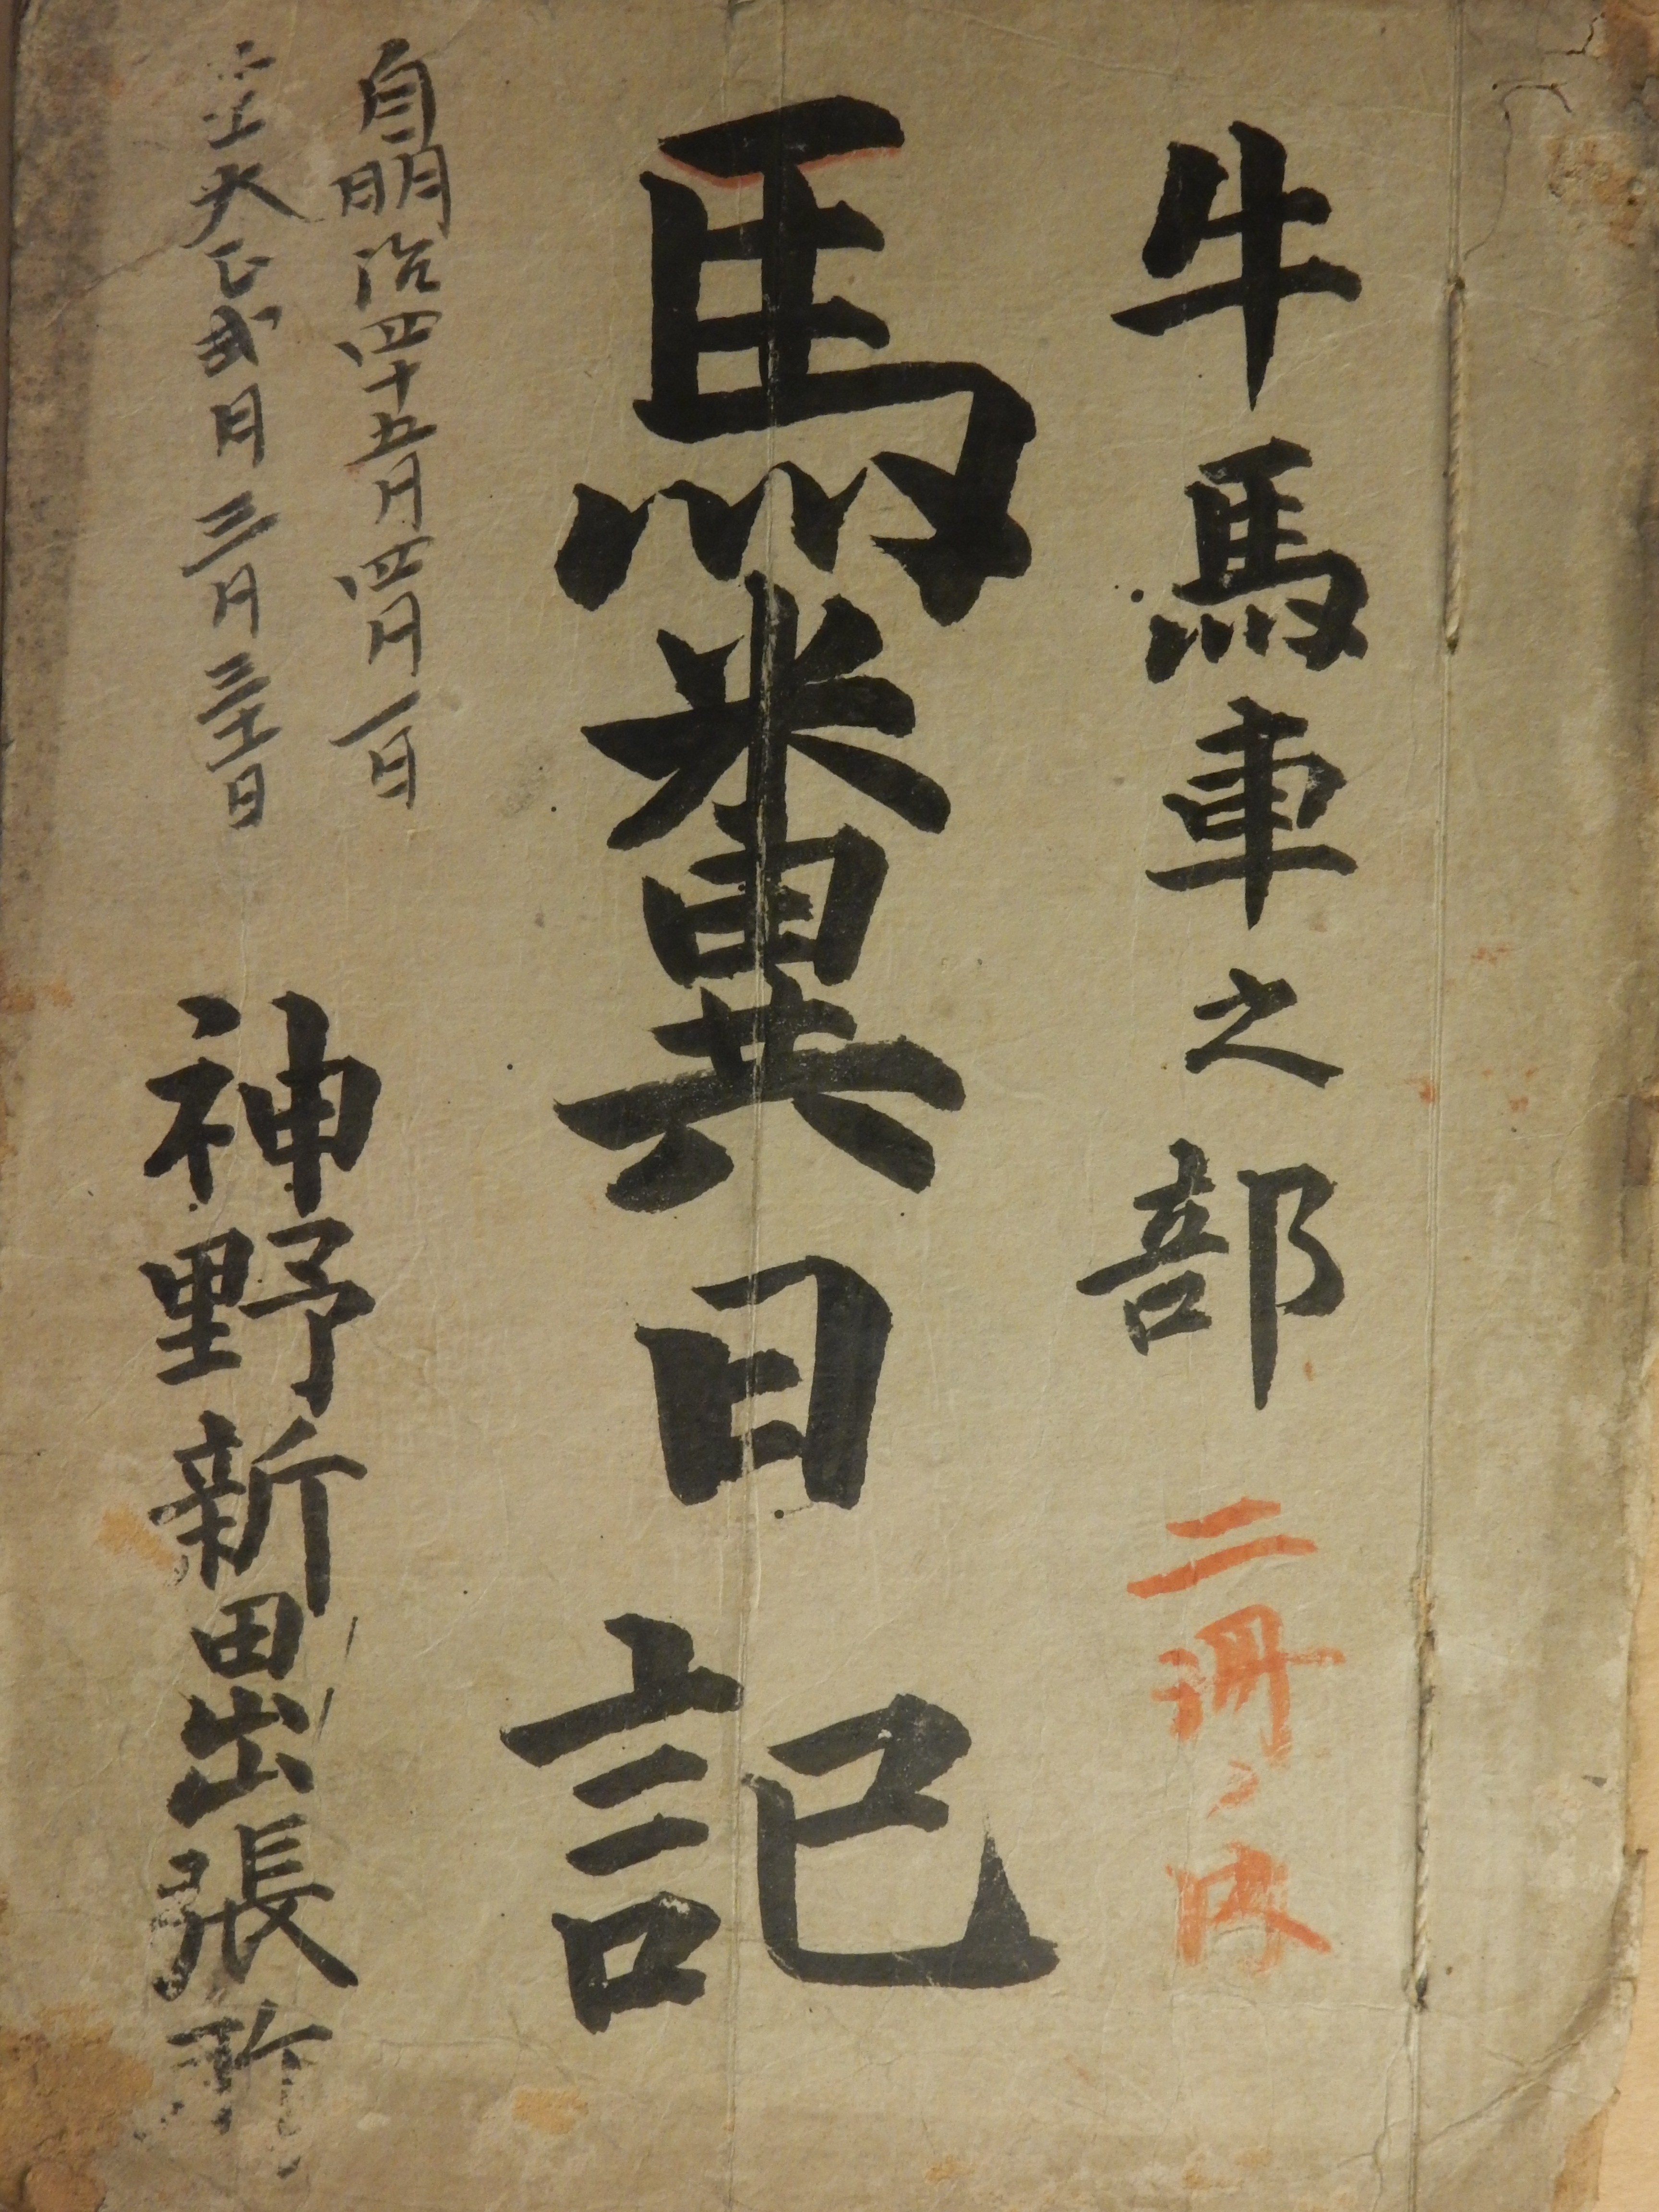 牛馬車之部 二冊ノ内
馬糞日記
自明治四十五月四月一日
至大正弐月三月三十一日
神野新田出張所